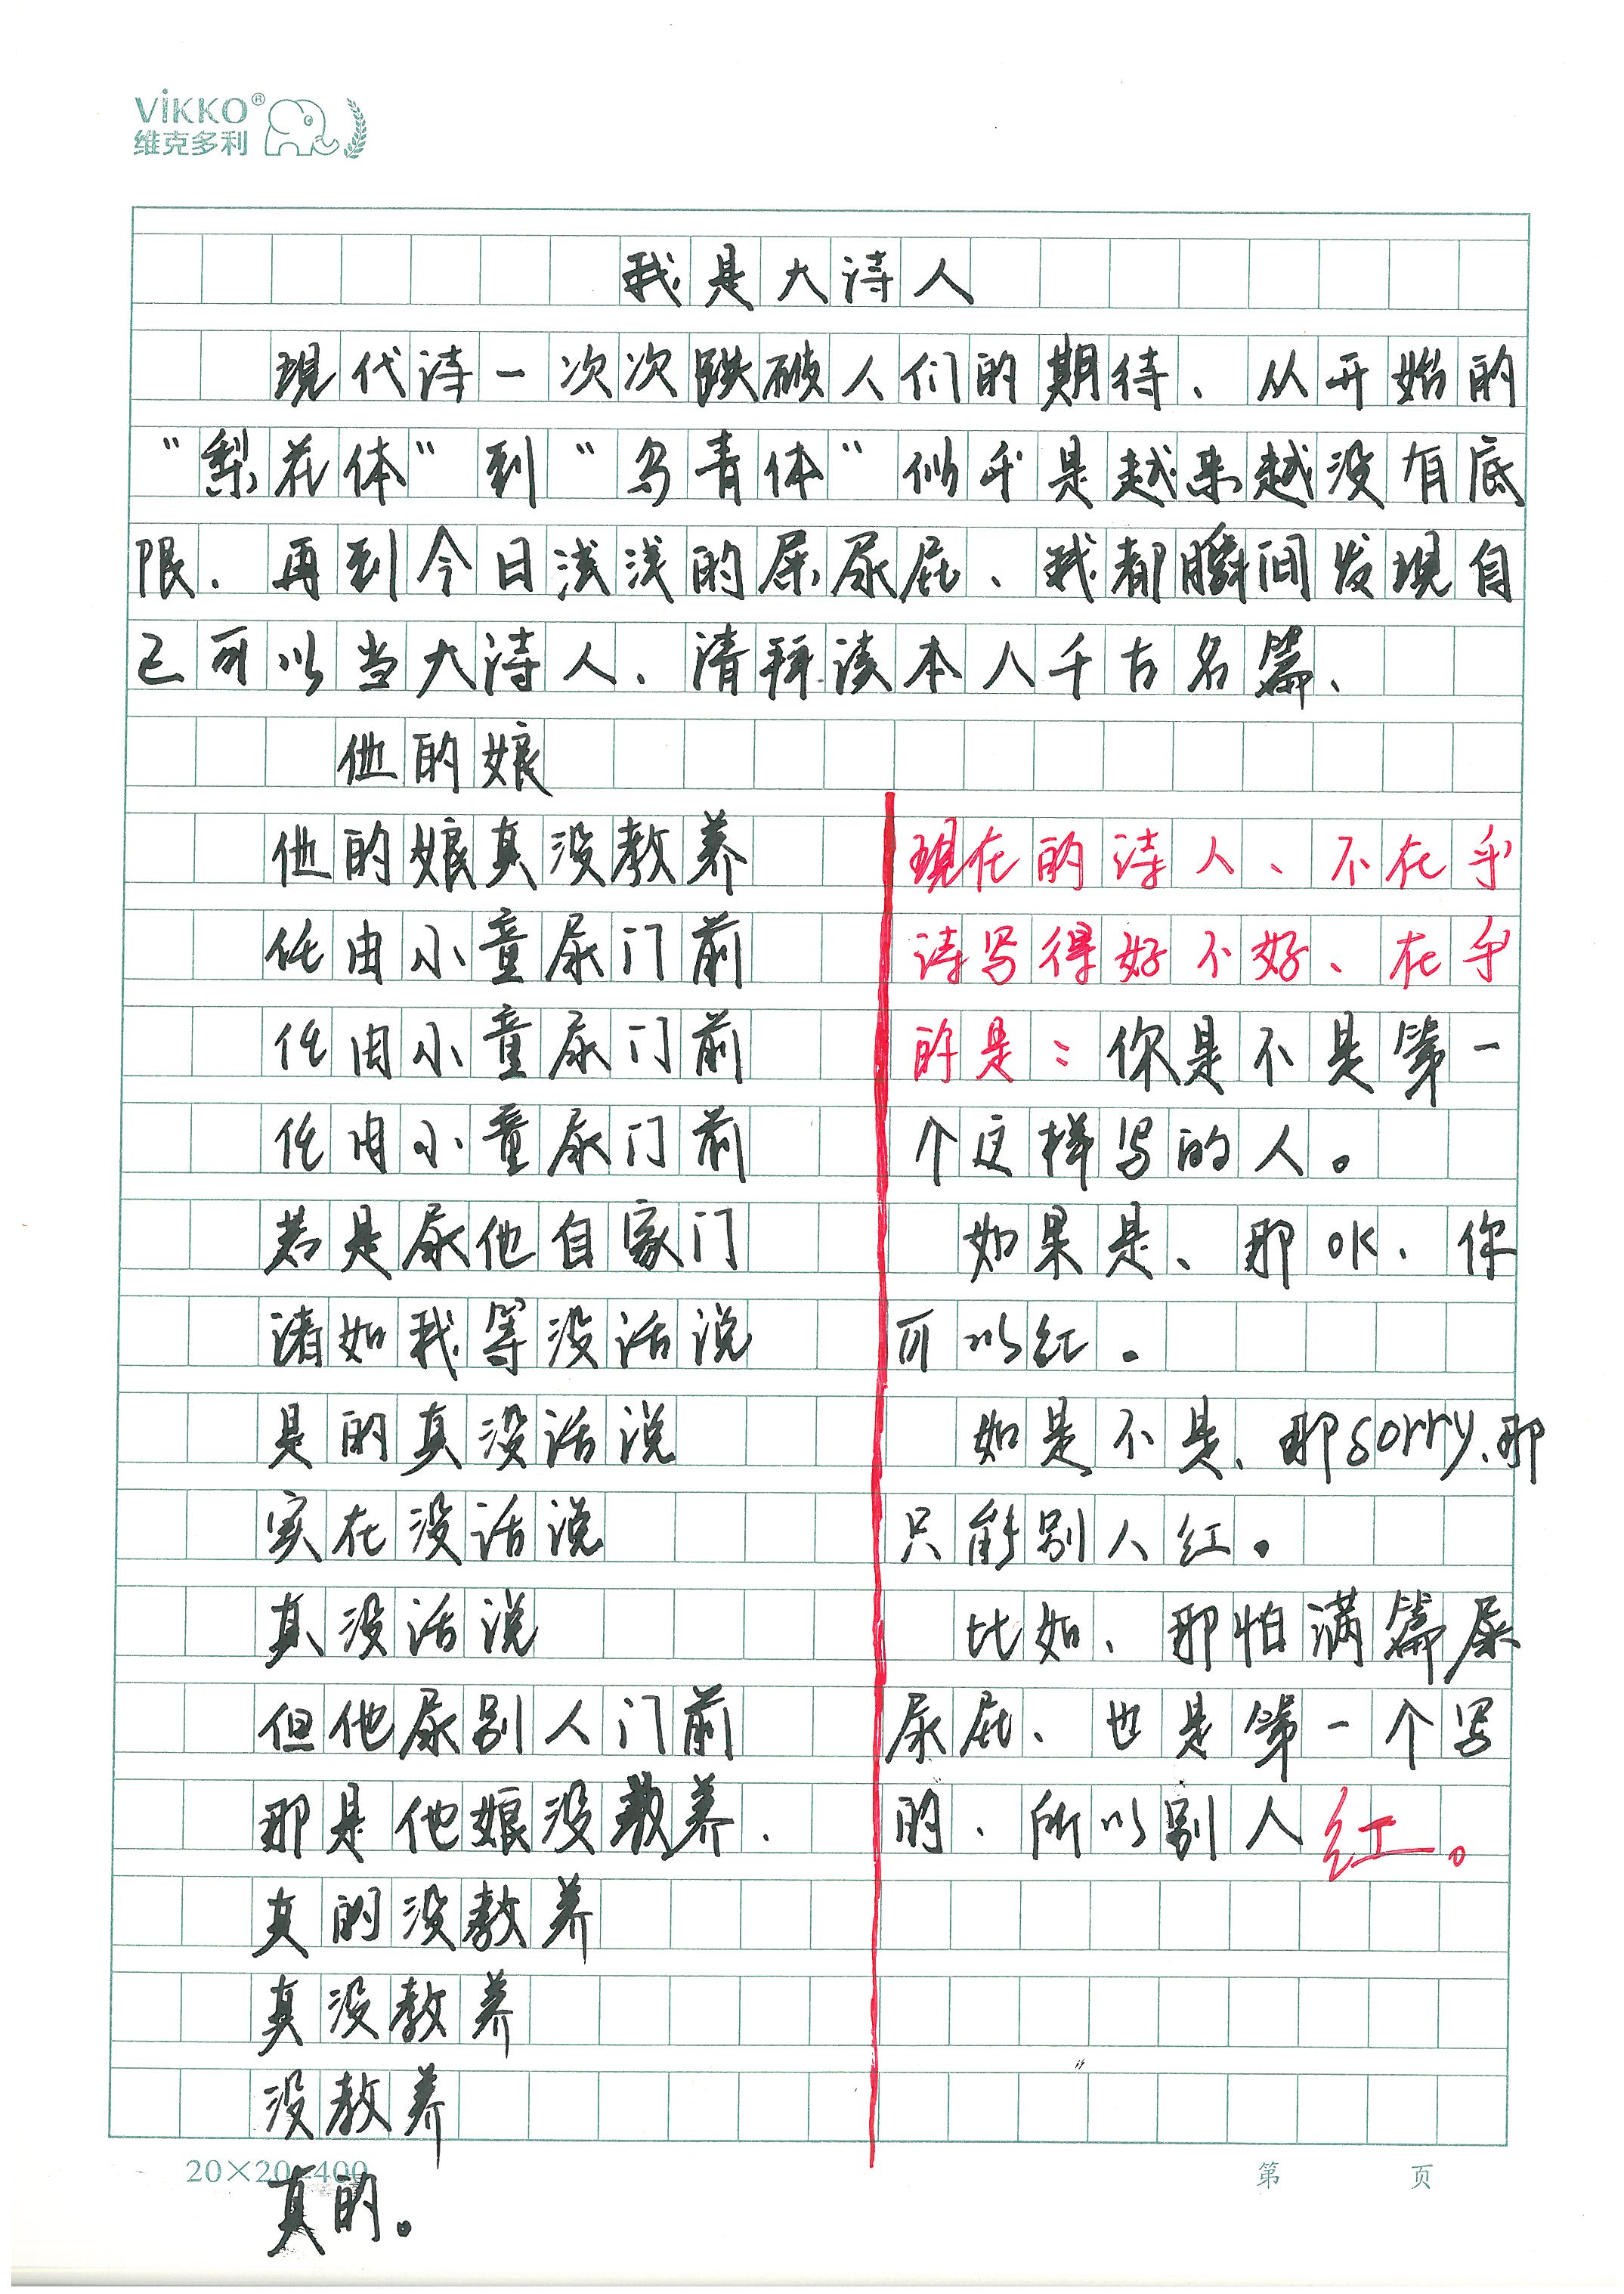 ViKKO®
维克多利
我是大诗人
现代诗一次次跌破人们的期待、从开始的
“梨花体”到“乌青体”似乎是越来越没有底
限.再到今日浅浅的屎尿屁、我都瞬间发现自
己可以当大诗人、请拜读本人千古名篇、
他的娘
他的娘真没教养
任由小童尿门前
任由小童尿门前
任由小童尿门前
若是尿他自家门
诸如我等没话说
是的真没话说
实在没话说
真没话说
但他尿别人门前
那是他娘没教养.
真的没教养
真没教养
没教养
真的。
现在的诗人、不在乎
诗写得好不好、在乎
的是：你是不是第一
个这样写的人。
如果是、那OK、你
可以红。
如是不是、那sorry、那
只能别人红。
比如、那怕满篇屎
尿屁、也是第一个写
的、所以别人红。
20×20=400
第 页